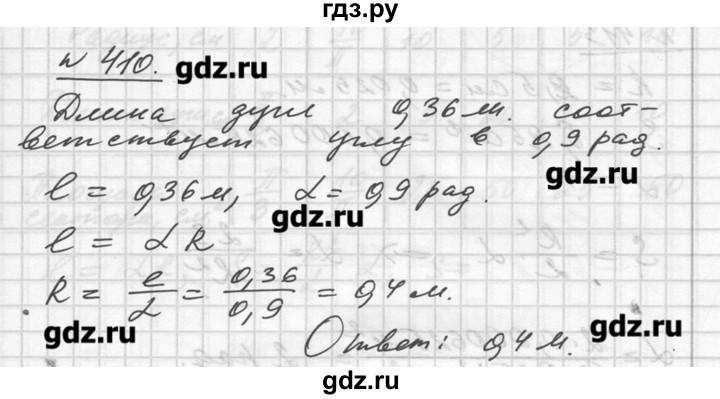 гдз.ру
N 410.
gdz.ru
Длина дуги 0,36 м. соот-
ветствует углу в 0,9 рад.
gdz.ru
l = 0,36 м, α = 0,9 рад.
gdz.ru
l = α R
R = l/α = 0,36/0,9 = 0,4 м.
gdz.ru
gdz.ru
Ответ: 0,4 м.
gdz.ru